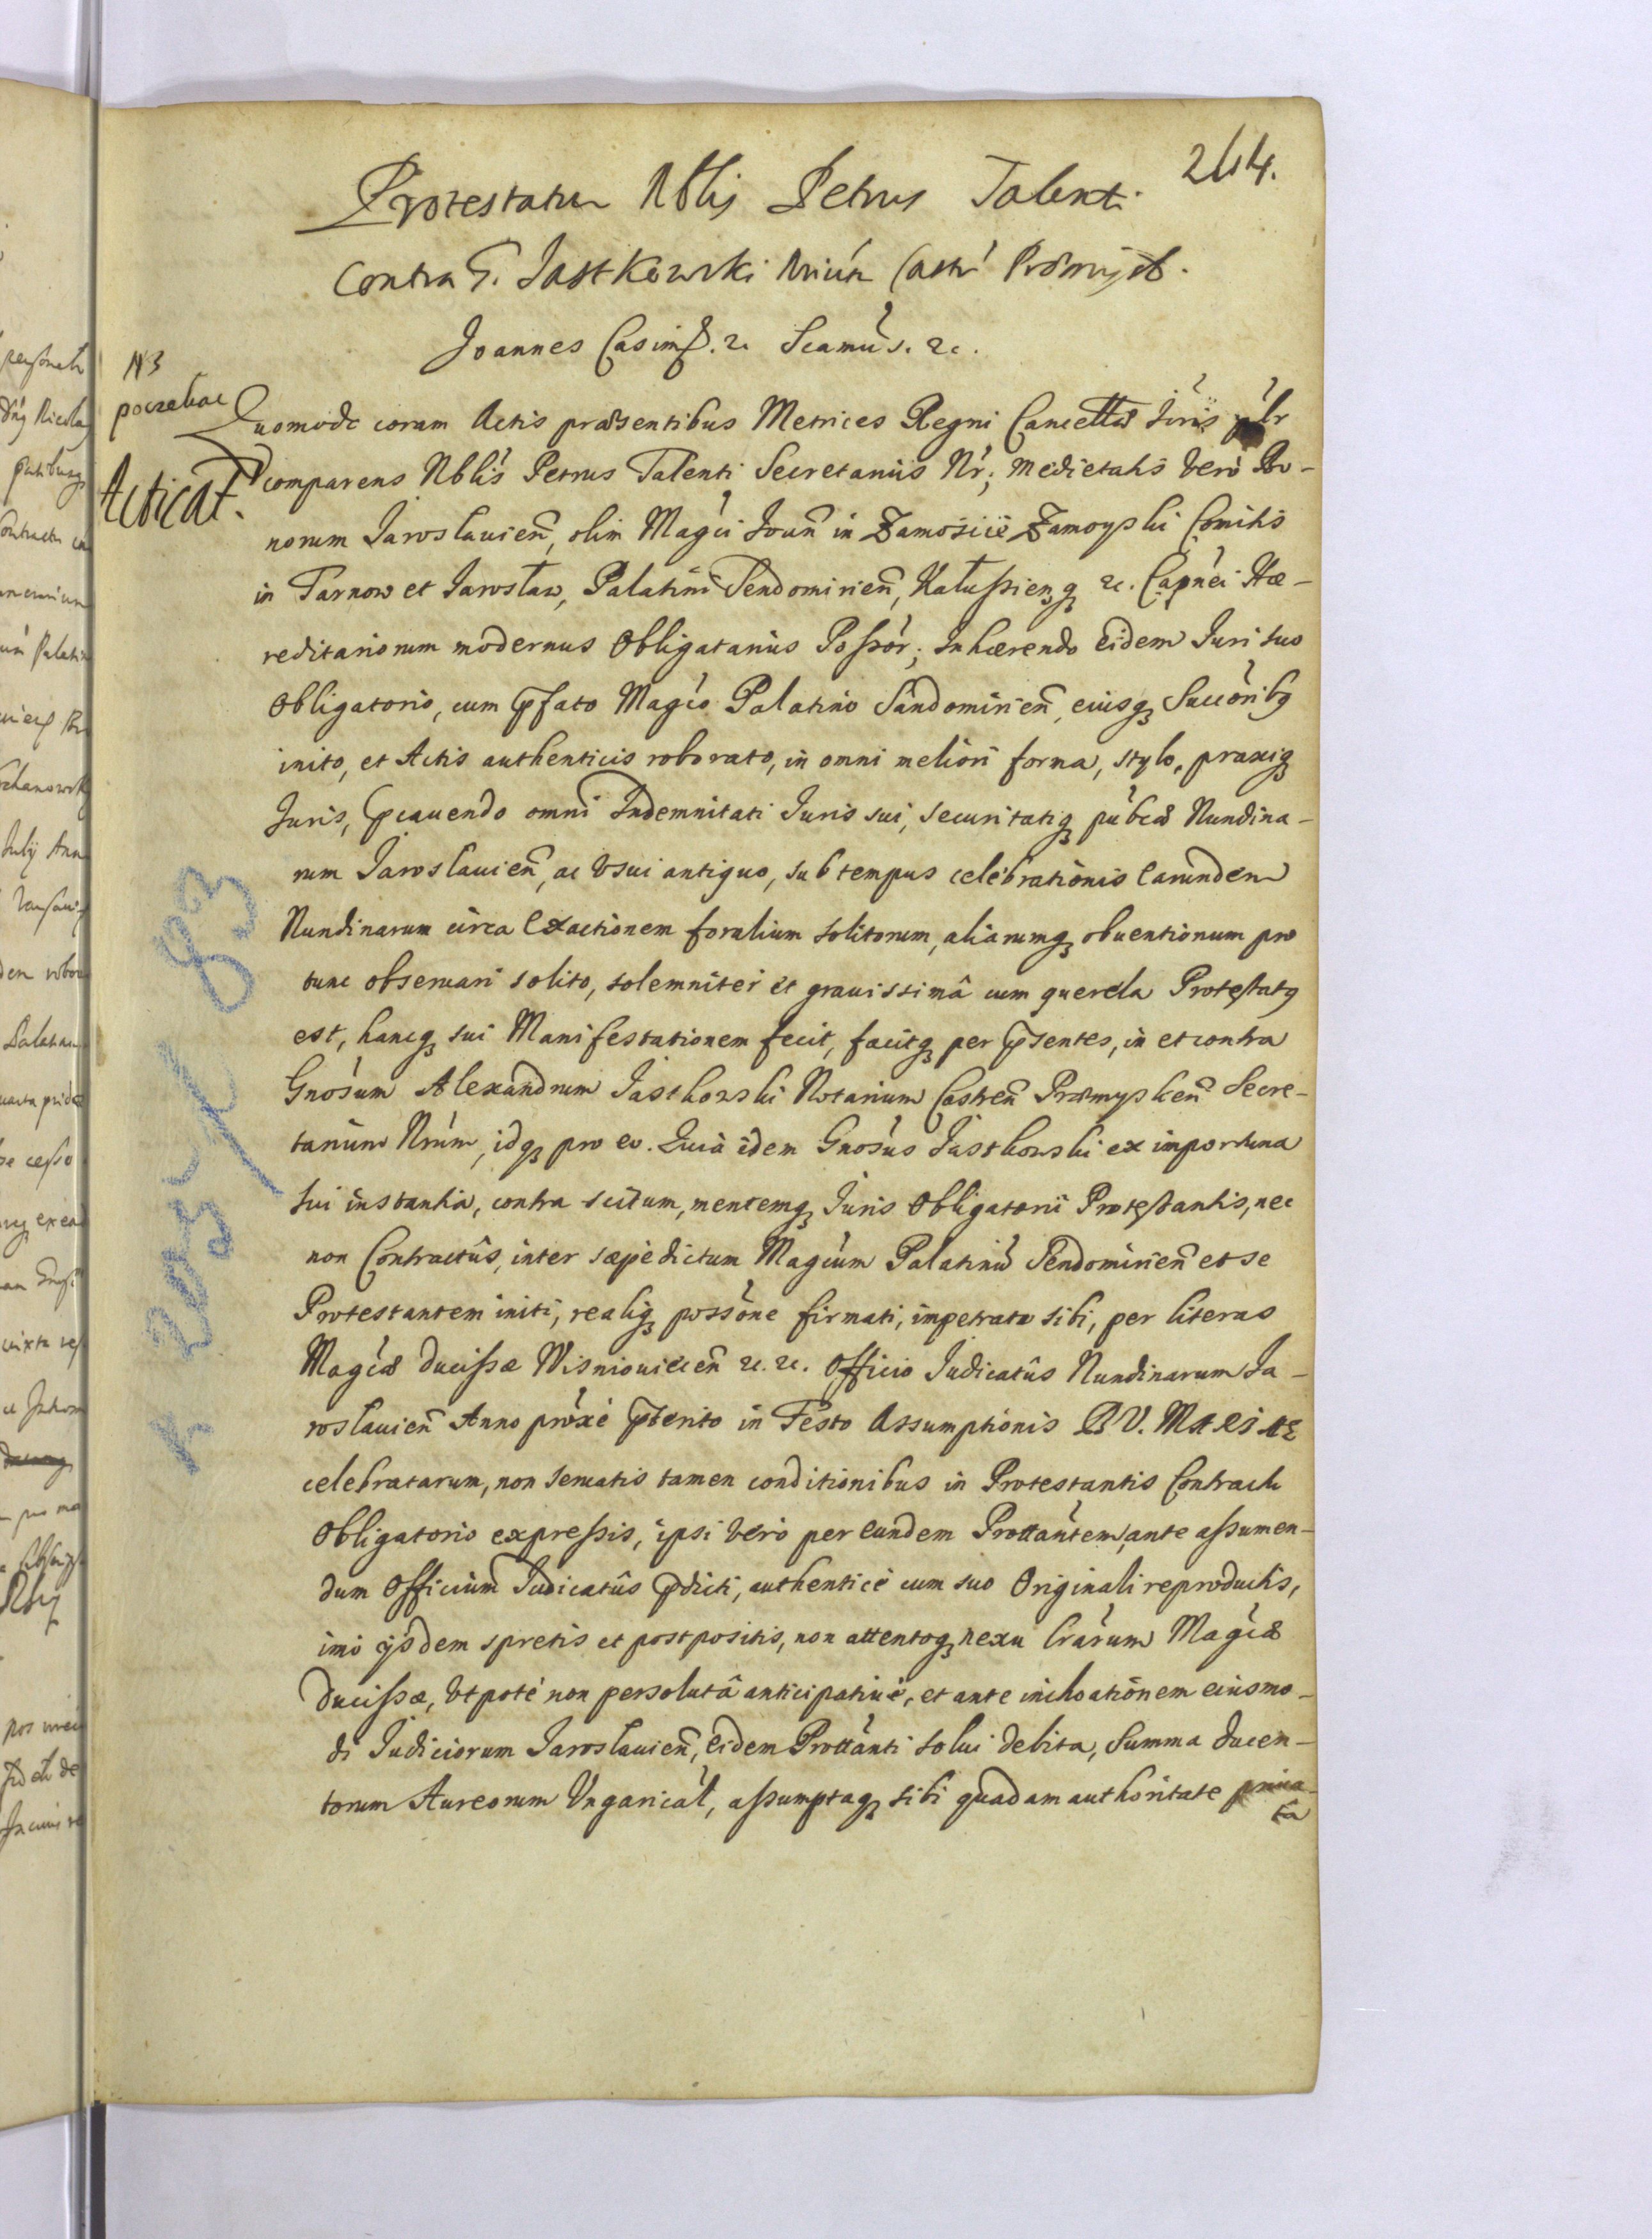 244.
Protestatur Nblis Petrus Talenti
contra G. Jastkowski Nriun Castr Præmysl.
Joannes Casimg. &c Scamus. &c.
N3
poczebac
Acticat.
Quomodo coram Actis præsentibus Metrices Regni Cancellæ Iuris
comparens Nblis Petrus Talenti Secretarius Nr; Medietatis Vero Bo-
norum Jaroslauien, olim Magci Joan in Zamoscie Zamoyski Comitis
in Tarnow et Jarosław, Palatini Sendomirien, Kałussienq &c. Capnei Hæ-
reditariorum modernus Obligatarius Possor; Inhærendo Eidem Juri suo
Obligatorio, cum pfato Magco Palatino Sandomirien, eiusq Succoribq
inito, et Actis authenticis roborato, in omni meliori forma, stylo, praxiq
Juris, pcauendo omni Indemnitati Juris sui, securitatiq pubcæ Nundina-
rum Jaroslauien, ac Vsui antiquo, sub tempus celebrationis Earundem
Nundinarum circa Exactionem foralium solitorum, aliarumq obuentionum pro
tunc obseruari solito, solemniter et grauissimâ cum querela Protestatq
est, hancq sui Manifestationem fecit, facitq per psentes, in et contra
Gnosum Alexandrum Jastkowski Notarium Castren Præmyslien Secre-
tarium Nrum, idq pro eo. Quià idem Gnosus Jastkowski ex importuna
sui instantia, contra scitum, mentemq Juris Obligatorii Protestantis, nec
non Contractûs, inter sæpèdictum Magcum Palatinu Sendomirien et se
Protestantem initi, realiq possone firmati, impetrato sibi, per literas
Magcæ Ducissæ Wisniouiecen &c. &c. Officio Judicatûs Nundinarum Ja-
roslauien Anno proxè pterito in Festo Assumptionis B V. MARIAE
celebratarum, non seruatis tamen conditionibus in Protestantis Contractu
Obligatorio expressis, ipsi Verò per Eundem Prottantem, ante assumen-
dum Officium Judicatûs pdicti, authenticè cum suo Originali reproductis,
imò ijsdem spretis et postpositis, non attentoq nexu Lrarum Magcæ
Ducissæ, Vtpotè non persolutâ anticipatiuè, et ante inchoationem eiusmo-
di Judiciorum Jaroslauien, Eidem Prottanti solui debita, Summa Ducen-
torum Aureorum Vngarical, assumptaq sibi quadam authoritate priua-
tâ